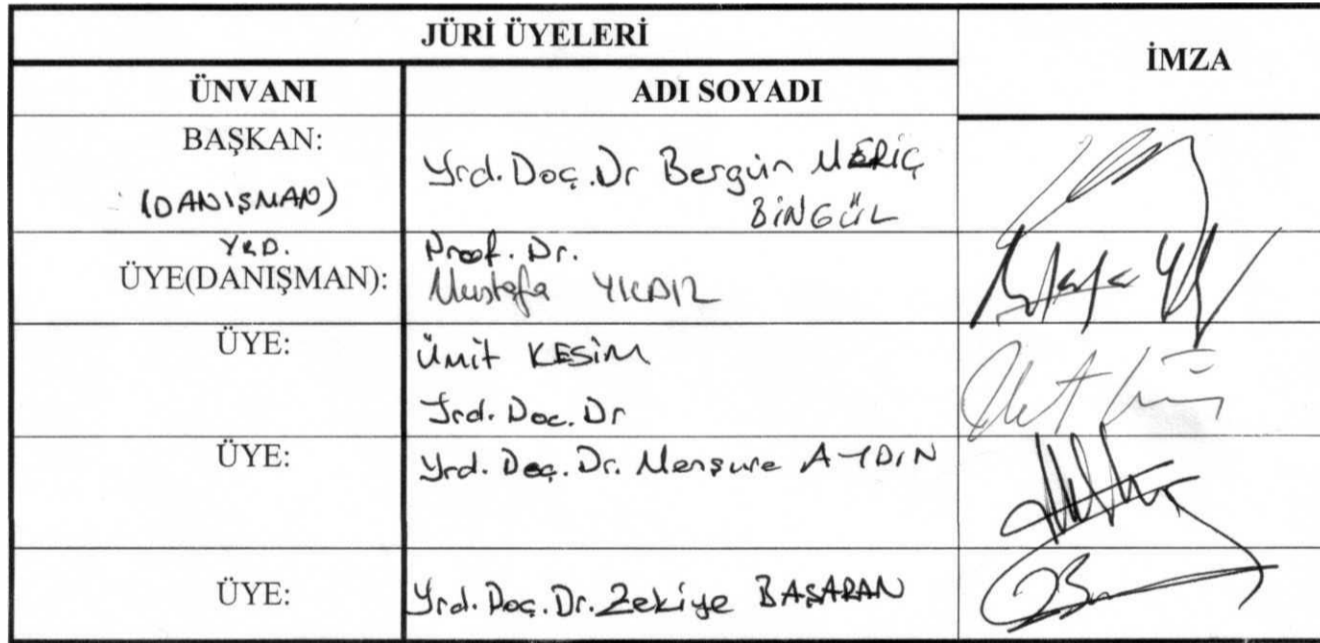 JÜRİ ÜYELERİ
İMZA
ÜNVANI ADI SOYADI
BAŞKAN:
(DANIŞMAN)
Yrd. Doç. Dr Bergün MERİÇ
BİNGÜL
YRD.
ÜYE(DANIŞMAN):
Prof. Dr.
Mustafa YILDIZ
ÜYE:
Ümit KESİM
Yrd. Doç. Dr
ÜYE:
Yrd. Doç. Dr. Menşure AYDIN
ÜYE:
Yrd. Doç. Dr. Zekiye BAŞARAN